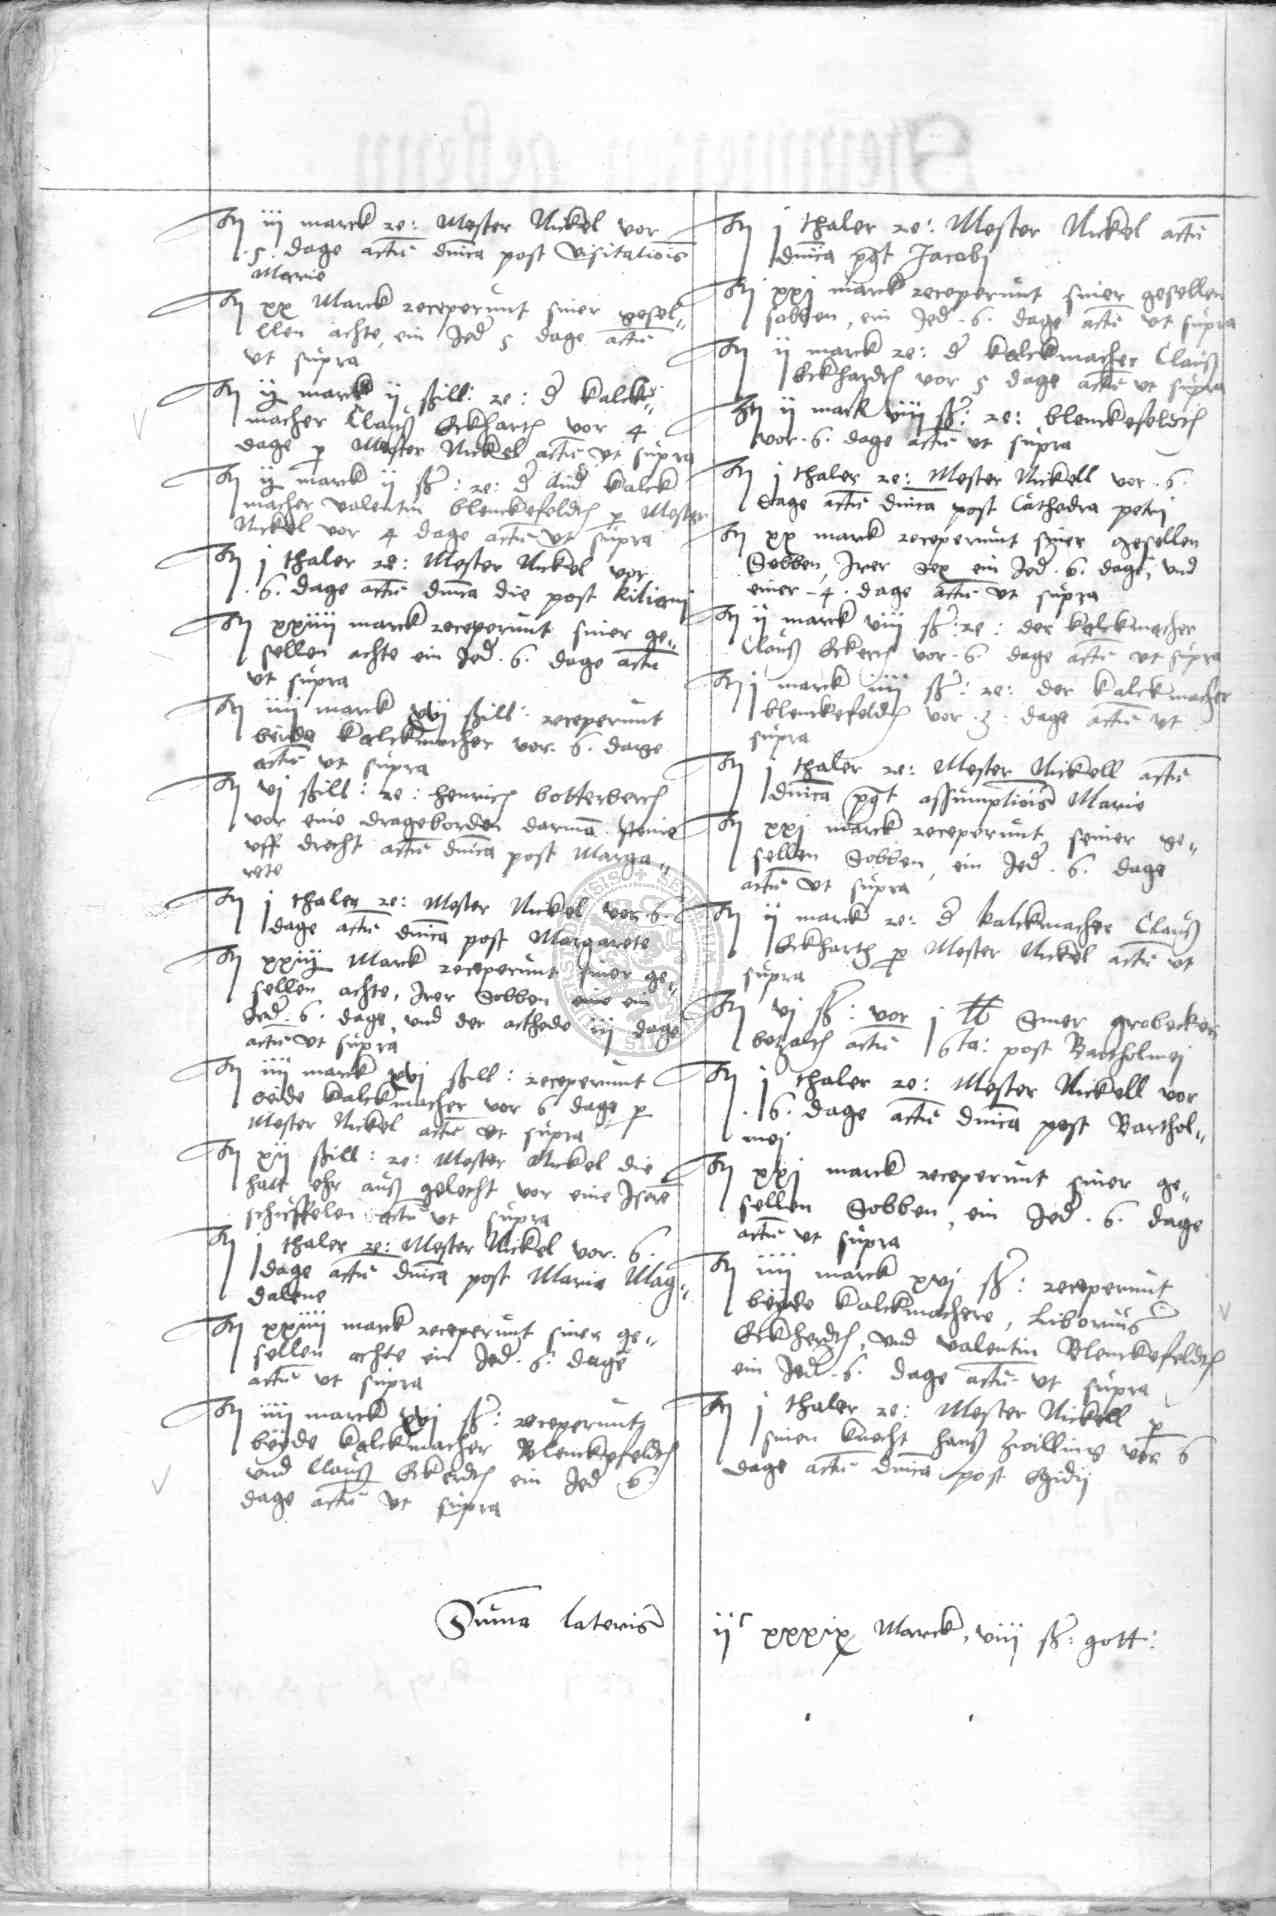 Itm iij marck re: Mester Nickel vor
. 5 . dage actu dnica post visitationis
Marie
Itm xx Marck receperunt siner gesel„
llen achte, ein Jed 5 dage actu
ut supra
Itm ij marck ij ßill: re: d kalck„
macher Claus Eckhartz vor 4
dage p Mester Nickel actu ut supra
Itm ij marck ij ß: re: d And kalck
macher valentin blenckefeldth p Mester
Nickel vor 4 dage actu ut supra
Itm j thaler re: Mester Nickel vor
. 6 . dage actu dnica die post kiliani
Itm xxiiij marck receperunt siner ge„
sellen achte ein Jed . 6 . dage actu
ut supra
Itm iiij marck xvj ßill: receperunt
beide kalckmacher vor . 6 . dage
actu ut supra
Itm vj ßill: re: henrich botterberch
vor eine drageborden darma steine
uff drecht actu dnica post Marga„
rete
Itm j thaler re: Mester Nickel vor . 6 .
dage actu dnica post Margarete
Itm xxiij Marck receperunt siner ge„
sellen achte, Irer Sobben eine ein
Jed . 6 . dage, und der achtede iij dage
actu ut supra
Itm iiij marck xvj ßill: receperunt
beide kalckmacher vor 6 dage p
Mester Nickel actu ut supra
Itm xij ßill: re: Mester Nickel die
hatt ehr auß gelecht vor eine Isere
schuffelen actu ut supra
Itm j thaler re: Mester Nickel vor . 6 .
dage actu dnica post Marie Mag„
dalene
Itm xxiiij marck receperunt siner ge„
sellen achte ein Jed . 6 . dage
actu ut supra
Itm iiij marck xvj ß: receperunt
beyde kalckmacher Blenckefeldth
und Clauß Eckerdth ein Jed 6 .
dage actu ut supra
Itm j thaler re: Mester Nickel actu
dnica post Jacobj
Itm xxj marck receperunt siner gesellen
sobben, ein Jed . 6 . dage actu ut supra
Itm ij marck re: d kalckmacher Clauß
Eckhardth vor 5 dage actu ut supra
Itm ij marck viij ß: re: blenckefeldth
vor . 6 . dage actu ut supra
Itm j thaler re: Mester Nickell vor . 6 .
dage actu dnica post Cathedra petri
Itm xx marck receperunt siner gesellen
Sobben, Irer Sex ein Jed . 6 . dage, und
einer - 4 . dage actu ut supra
Itm ij marck viij ß: re: der kalckmacher
Clauß Eckerth vor . 6 . dage actu ut supra
Itm j marck iiij ß: re: der kalckmacher
blenckefeldth vor . 3 . dage actu ut
supra
Itm j thaler re: Mester Nickell actu
dnica post assumptionis Marie
Itm xxj marck receperunt seiner ge„
sellen Sobben, ein Jed . 6 . dage
actu ut supra
Itm ij marck re: d kalckmacher Clauß
Eckhartz p Mester Nickel actu ut
supra
Itm vj ß: vor j ℔ Smer grobecker
betzalth actu post Bartholmej
Itm j thaler re: Mester Nickell vor
. 6 . dage actu dnica post Barthol„
mej
Itm xxj marck receperunt siner ge„
sellen Sobben, ein Jed . 6 . dage
actu ut supra
Itm iiij marck xvj ß: receperunt
beyde kalckmachere, Liborius
Eckherdth, und valentin Blenckefeldth
ein Jed . 6 . dage actu ut supra
Itm j thaler re: Mester Nickell p
sinen knecht hanß Zwilling vor 6
dage actu dnica post Egidij
Suma lateris ijc xxxix Marck, viij ß: gott: